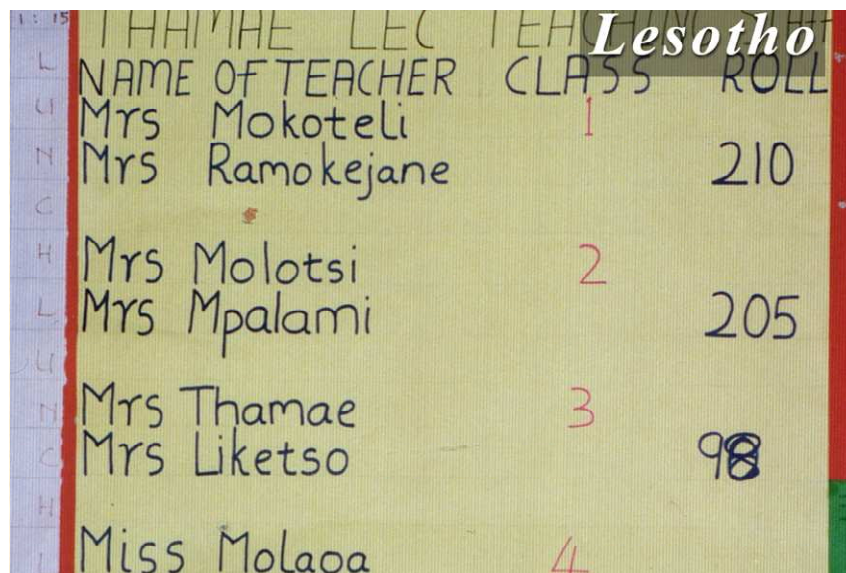 1:15
THAMAE LEC TEACHING STAFF
Lesotho
NAME OF TEACHER CLASS ROLL
Mrs Mokoteli 1
Mrs Ramokejane 210
Mrs Molotsi 2
Mrs Mpalami 205
Mrs Thamae 3
Mrs Liketso 98
Miss Molaoa 4
L
U
N
C
H
L
U
N
C
H
L